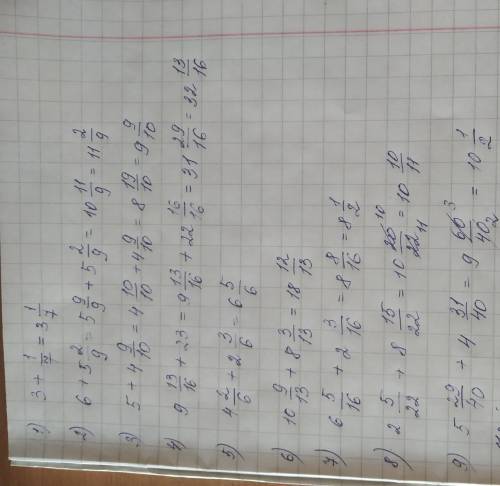 1) 3 + 1/7 = 3 1/7
2) 6 + 5 2/9 = 5 9/9 + 5 2/9 = 10 11/9 = 11 2/9
3) 5 + 4 9/10 = 4 10/10 + 4 9/10 = 8 19/10 = 9 9/10
4) 9 13/16 + 23 = 9 13/16 + 22 16/16 = 31 29/16 = 32 13/16
5) 4 2/6 + 2 3/6 = 6 5/6
6) 10 9/13 + 8 3/13 = 18 12/13
7) 6 5/16 + 2 3/16 = 8 8/16 = 8 1/2
8) 2 5/22 + 8 15/22 = 10 20 10/22 11 = 10 10/11
9) 5 29/40 + 4 31/40 = 9 60 3/40 2 = 10 1/2